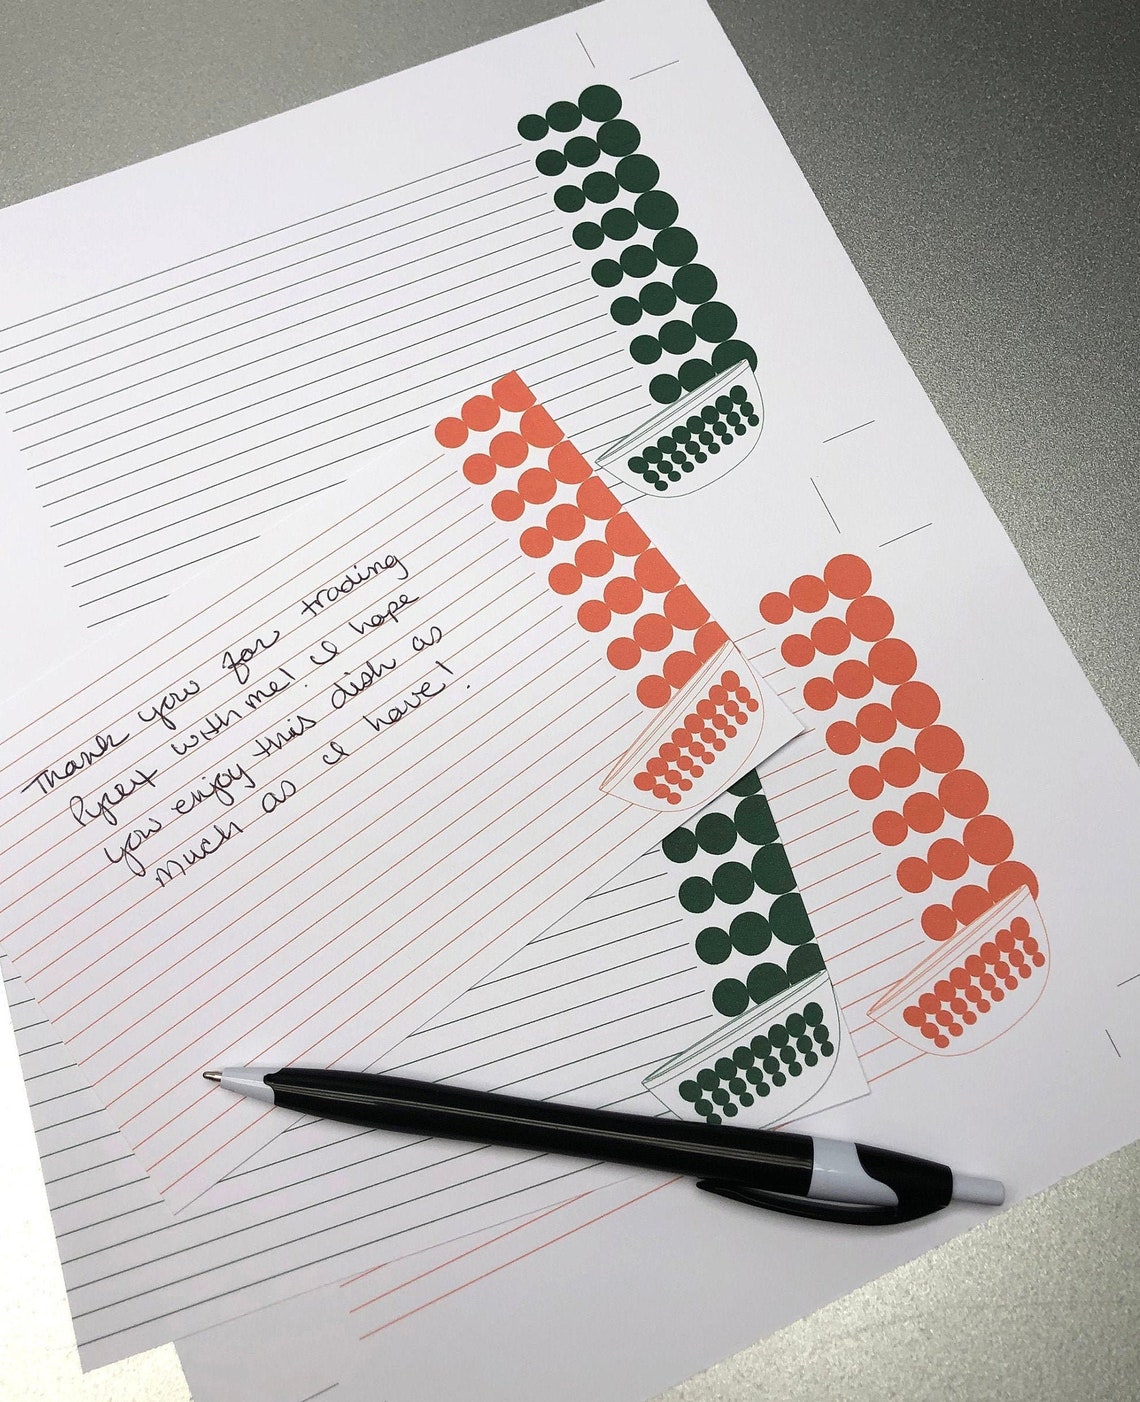 Thank you for trading
Pyrex with me! I hope
you enjoy this dish as
much as I have!